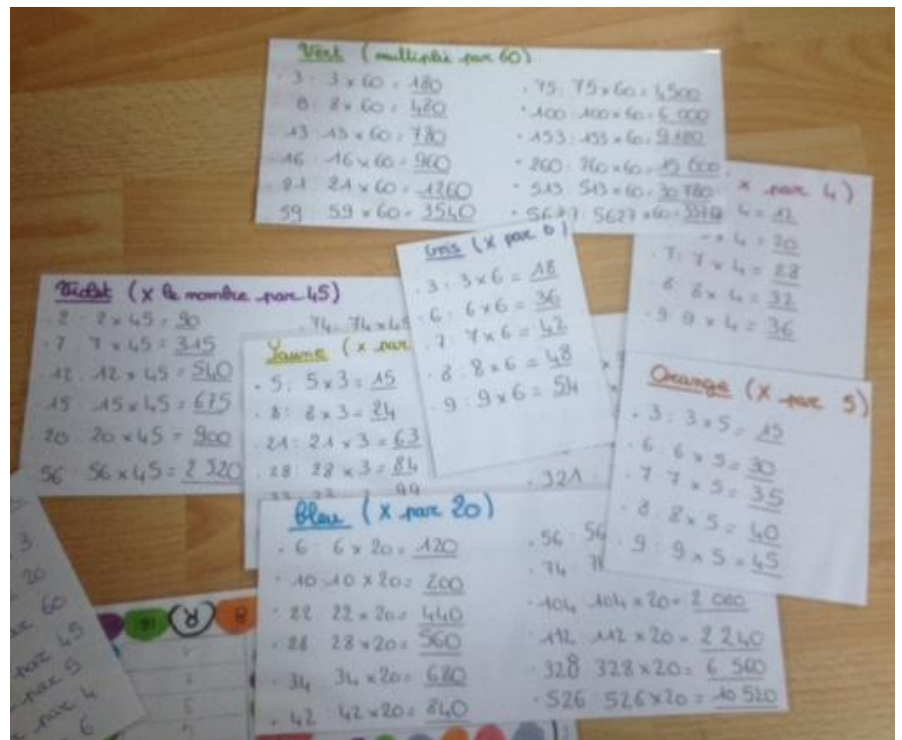 Vert (multiplié par 60)
. 3 : 3 x 60 = 180
8 : 8 x 60 = 480
. 13 : 13 x 60 = 780
. 16 : 16 x 60 = 960
. 21 : 21 x 60 = 1260
59 : 59 x 60 = 3540
. 75 : 75 x 60 = 4500
. 100 : 100 x 60 = 6 000
. 153 : 153 x 60 = 9 180
. 260 : 260 x 60 = 15 600
. 513 : 513 x 60 = 30 780
. 5627 : 5627 x 60 =
x par 4)
4 = 12
x 4 = 20
. 7 : 7 x 4 = 28
. 8 : 8 x 4 = 32
. 9 : 9 x 4 = 36
Gris (x par 6)
. 3 : 3 x 6 = 18
. 6 : 6 x 6 = 36
. 7 : 7 x 6 = 42
. 8 : 8 x 6 = 48
. 9 : 9 x 6 = 54
Violet (x le nombre par 45)
. 2 : 2 x 45 = 90
. 7 : 7 x 45 = 315
. 12 : 12 x 45 = 540
. 15 : 15 x 45 = 675
. 20 : 20 x 45 = 900
56 : 56 x 45 = 2 520
. 74 : 74 x 45
Jaune (x par
. 5 : 5 x 3 = 15
. 8 : 8 x 3 = 24
. 21 : 21 x 3 = 63
. 28 : 28 x 3 = 84
99
. 321
Orange (x par 5)
. 3 : 3 x 5 = 15
. 6 : 6 x 5 = 30
. 7 : 7 x 5 = 35
. 8 : 8 x 5 = 40
. 9 : 9 x 5 = 45
Bleu (x par 20)
. 6 : 6 x 20 = 120
. 10 : 10 x 20 = 200
. 22 : 22 x 20 = 440
. 28 : 28 x 20 = 560
. 34 : 34 x 20 = 680
. 42 : 42 x 20 = 840
. 56 : 56
. 74
. 104 : 104 x 20 = 2 080
. 112 : 112 x 20 = 2 240
. 328 : 328 x 20 = 6 560
. 526 : 526 x 20 = 10 520
3
20
60
45
par 5
par 4
6
(R)